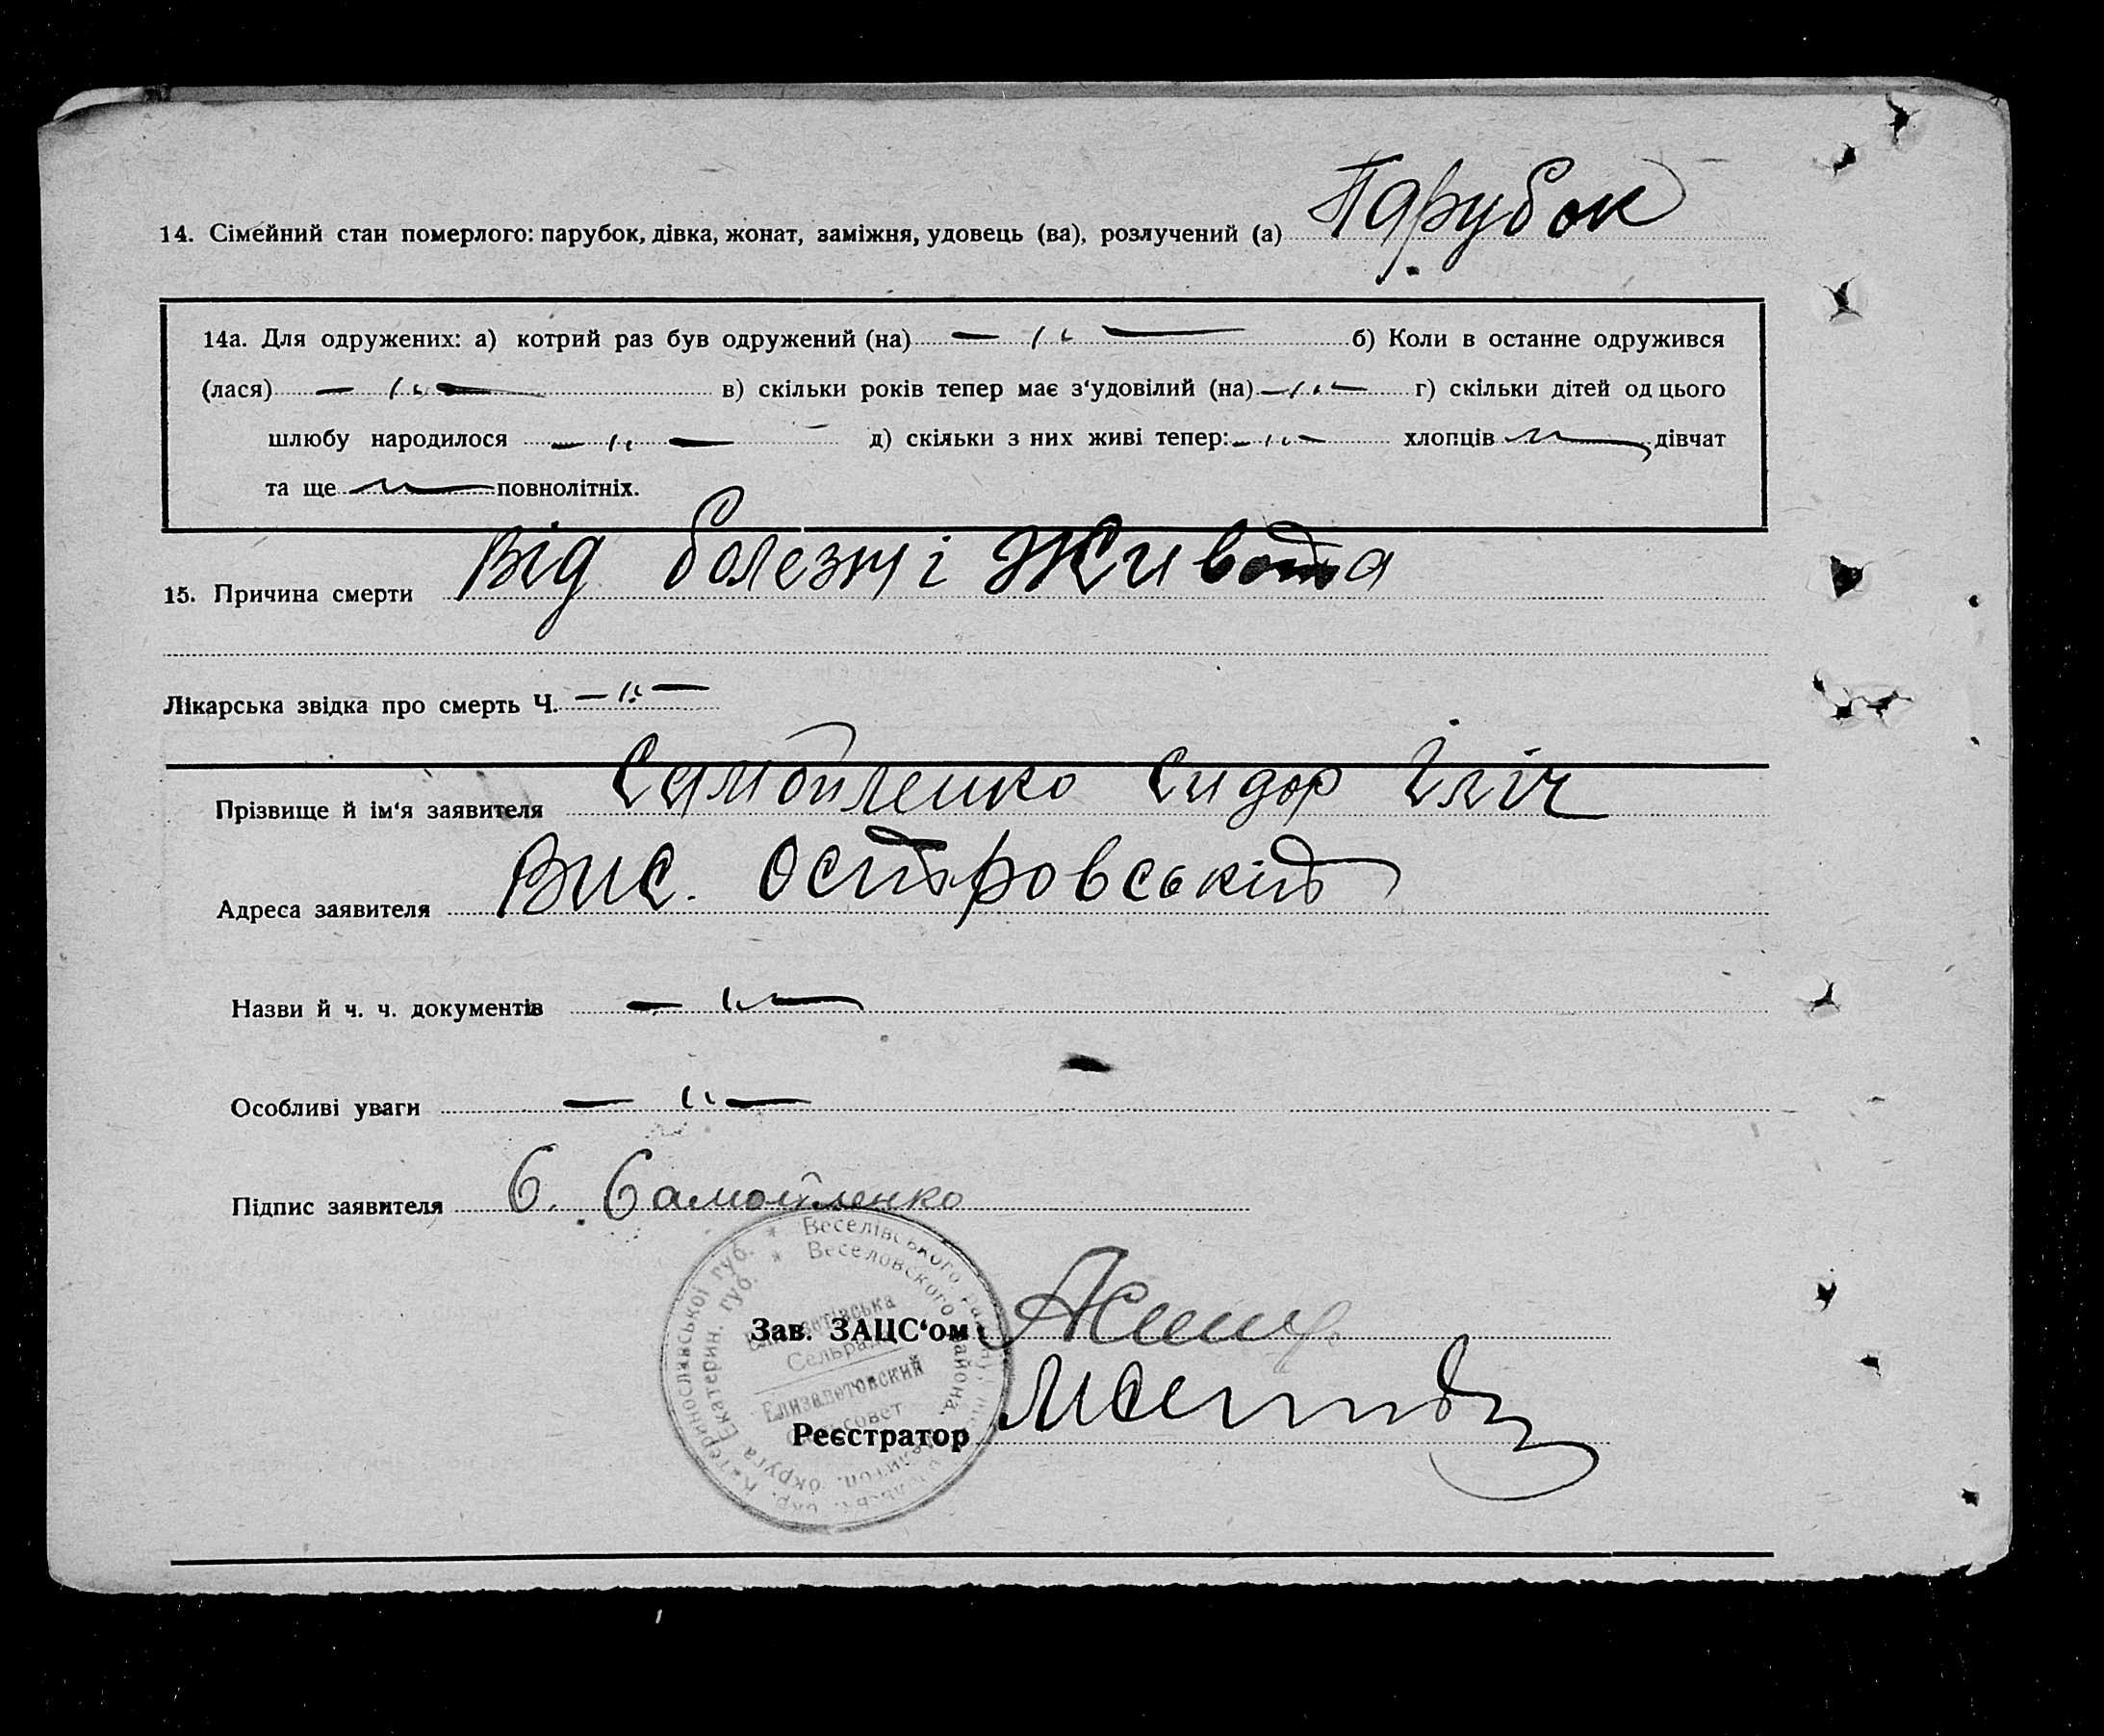 14. Сімейний стан померлого: парубок, дівка, жонат, заміжня, удовець (ва), розлучений (а) Парубок
14а. Для одружених: а) котрий раз був одружений (на) —〃 — б) Коли в останне одружився
(лася) — 〃 — в) скільки років тепер має з‘удовілий (на) — 〃 — г) скільки дітей од цього
шлюбу народилося — 〃 — д) скільки з них живі тепер: — 〃 — хлопців 〃 — дівчат
та ще 〃 — повнолітніх.
15. Причина смерти Від болезні Живота
Лікарська звідка про смерть Ч. — 〃 —
Прізвище й ім‘я заявителя Самойленко Сидор Іліч
Адреса заявителя Вис. Островський
Назви й ч. ч. документів — 〃 —
Особливі уваги — 〃 —
Підпис заявителя С. Самойленко
Зав. ЗАЦС‘ом
Реєстратор
* Веселівського району
Катеринославської губ.
* Веселовского района.
округа Екатерин. губ.
Сельрада
Елизаветовский
сельсовет